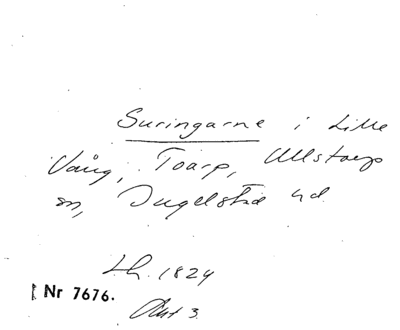 Suringarne i Lille
Vång, Toarp, Ullstorp
sn, Ingelstad hd.
Lh. 1824
Nr 7676.
3